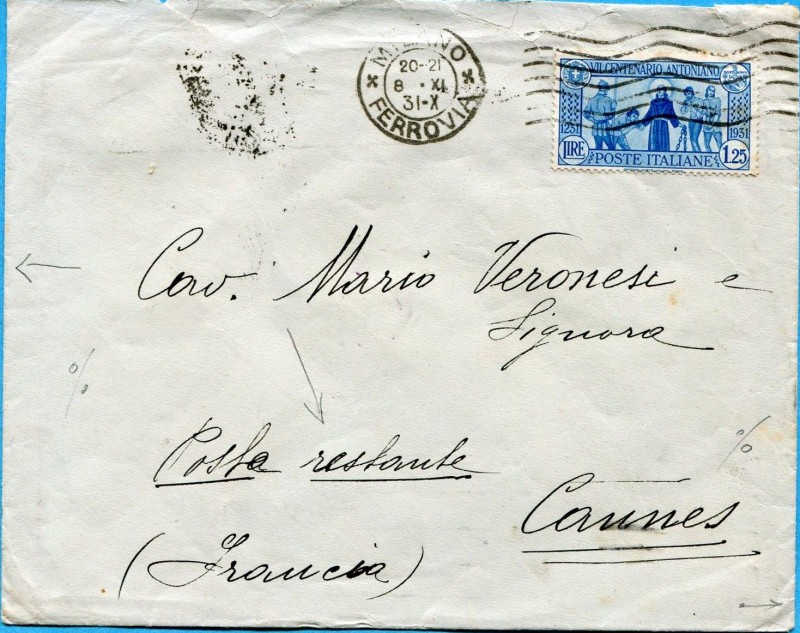 MILANO
20-21
8 · XI
31-X
FERROVIA
VII CENTENARIO ANTONIANO
1231 1931
LIRE POSTE ITALIANE 1.25
Cav. Mario Veronesi e
Signora
%
%
Posta restante
Cannes
(Francia)